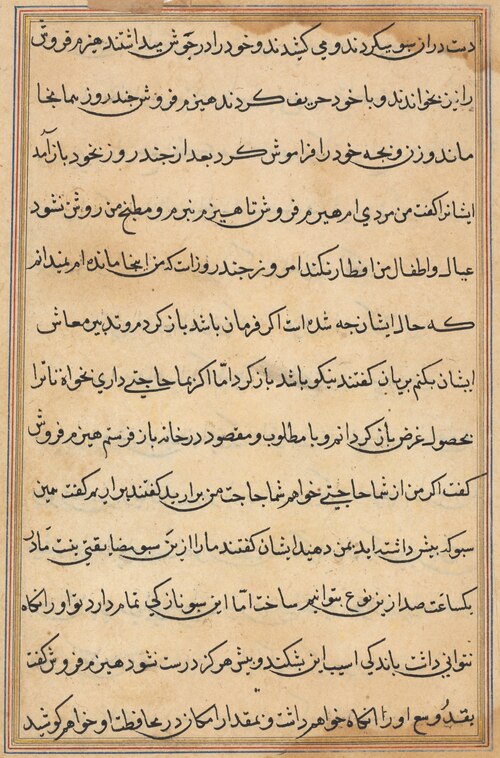 دست دران سبو میکردند و می کشیدند و خود را در جوش میداشتند هیزم فروش
را نیز بخواندند و با خود حریف کردند هیزم فروش چند روز همانجا
ماند و زن و بچه خود را فراموش کرد بعد از چند روز بخود باز آمد
ایشانرا گفت من مردی ام هیزم فروش تا هیزم نبرم و مطبخ من روشن نشود
عیال و اطفال من افطار نکند امروز چند روز است که من اینجا مانده ام نمیدانم
که حال ایشان چه شده است اگر فرمان باشد باز گردم و تدبیر معاش
ایشان بکنم پریان گفتند نیکو باشد باز گرد اما اگر بما حاجتی داری بخواه تا ترا
بحصول غرض باز گردانم و با مطلوب و مقصود در خانه باز فرستم هیزم فروش
گفت اگر من از شما حاجتی خواهم شما حاجت من برارید گفتند براریم گفت همین
سبو که پیش داشته اید بمن دهید ایشان گفتند ما را ازین سبو مضایقتی نیست ما در
یکساعت صد ازین نوع بتوانیم ساخت اما این سبو نازکی تمام دارد تو او را نگاه
نتوانی داشت باندکی اسیب این بشکند و پیش هرگز درست نشود هیزم فروش گفت
بقدر وسع او را نگاه خواهم داشت و بمقدار امکان در محافظت او خواهم کوشید